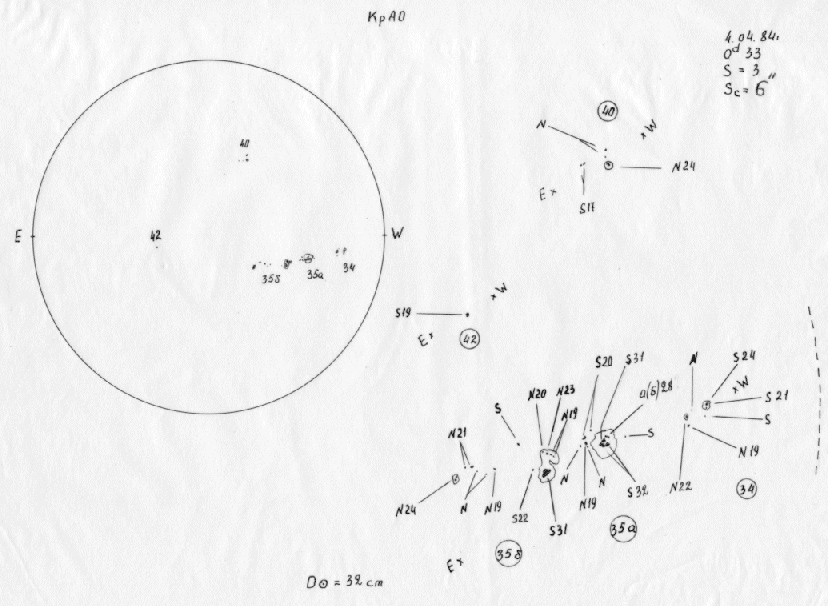 КрАО
4.04.84г
0ᵈ 33
S = 3
Sc = 6"
40
E
W
42
35б
35а
34
40
N
W
N24
E
S17
S19
W
E
42
S20
S31
N
S24
а(б)28
W
N20
N23
S21
S
N19
S
N21
S
N19
N24
N
N19
S22
S31
N
N19
N
S32
N22
34
35а
35б
E
D⊙ = 32 cm